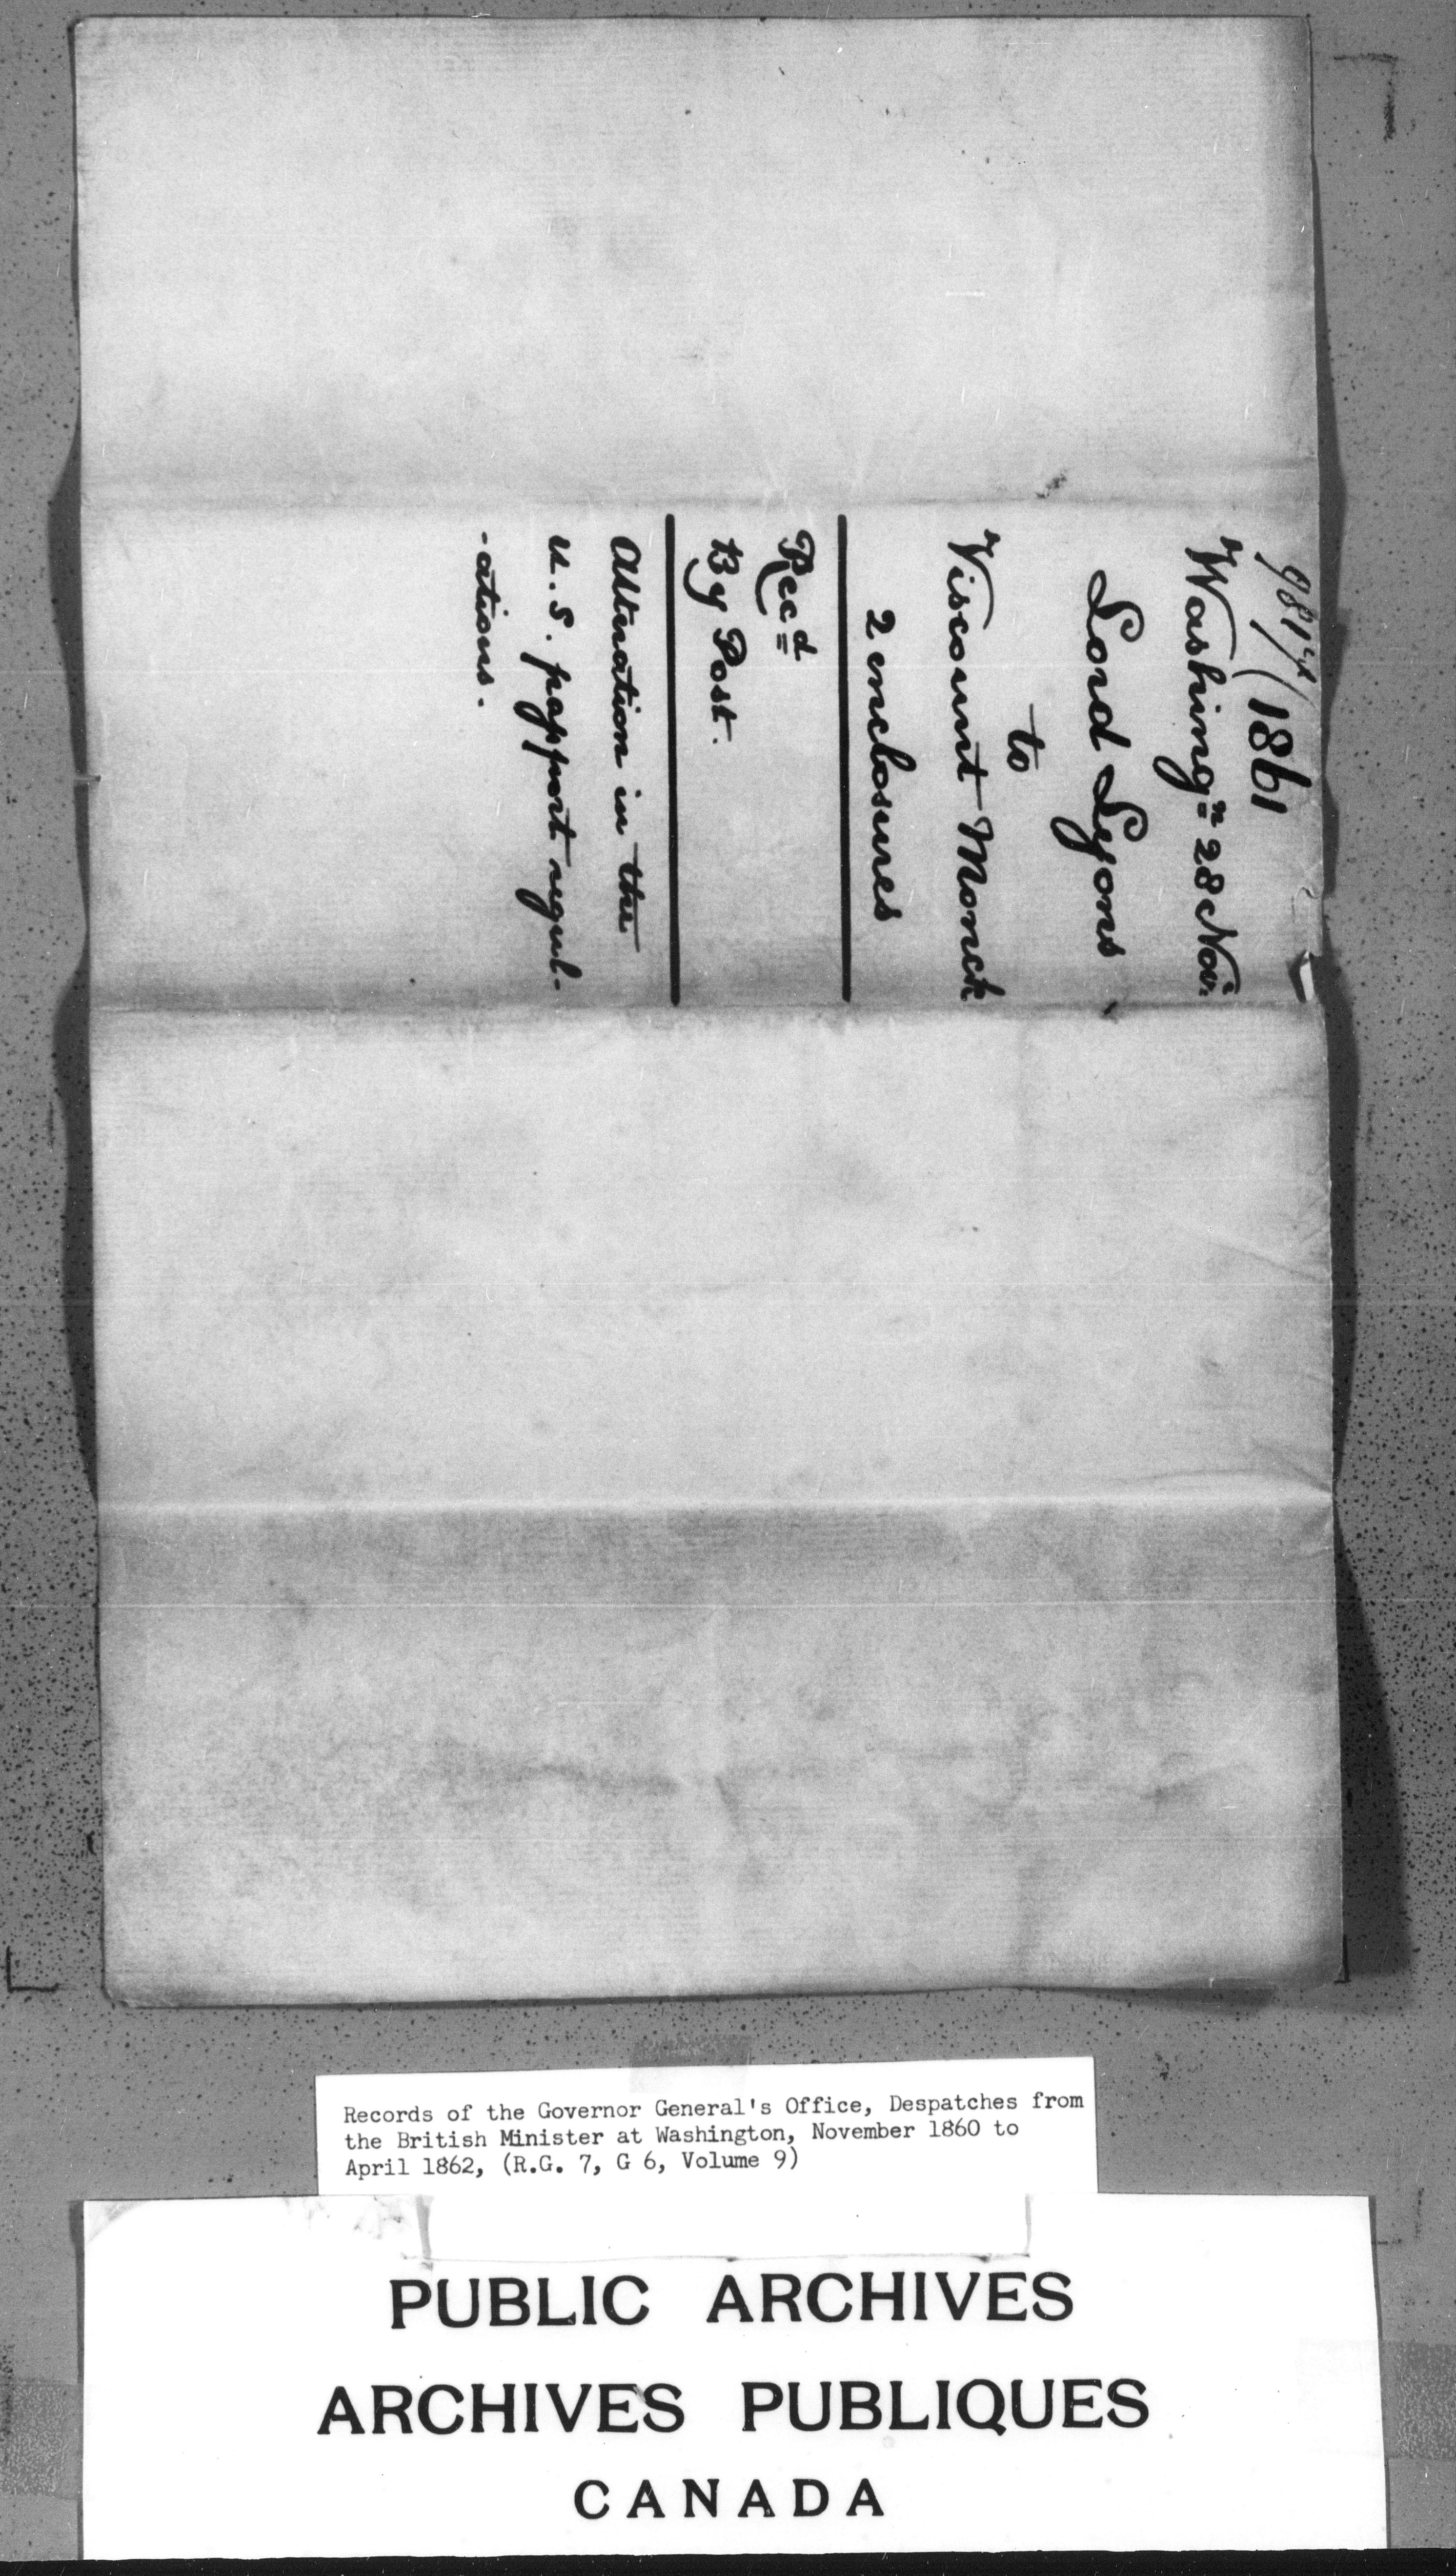 1861
Washingn 28 Nov:
Lord Lyons
to
Viscount Monck
2 enclosures
Recd
By Post.
Alteration in the
U.S. passport regul-
-ations.
Records of the Governor General's Office, Despatches from
the British Minister at Washington, November 1860 to
April 1862, (R.G. 7, G 6, Volume 9)
PUBLIC ARCHIVES
ARCHIVES PUBLIQUES
CANADA